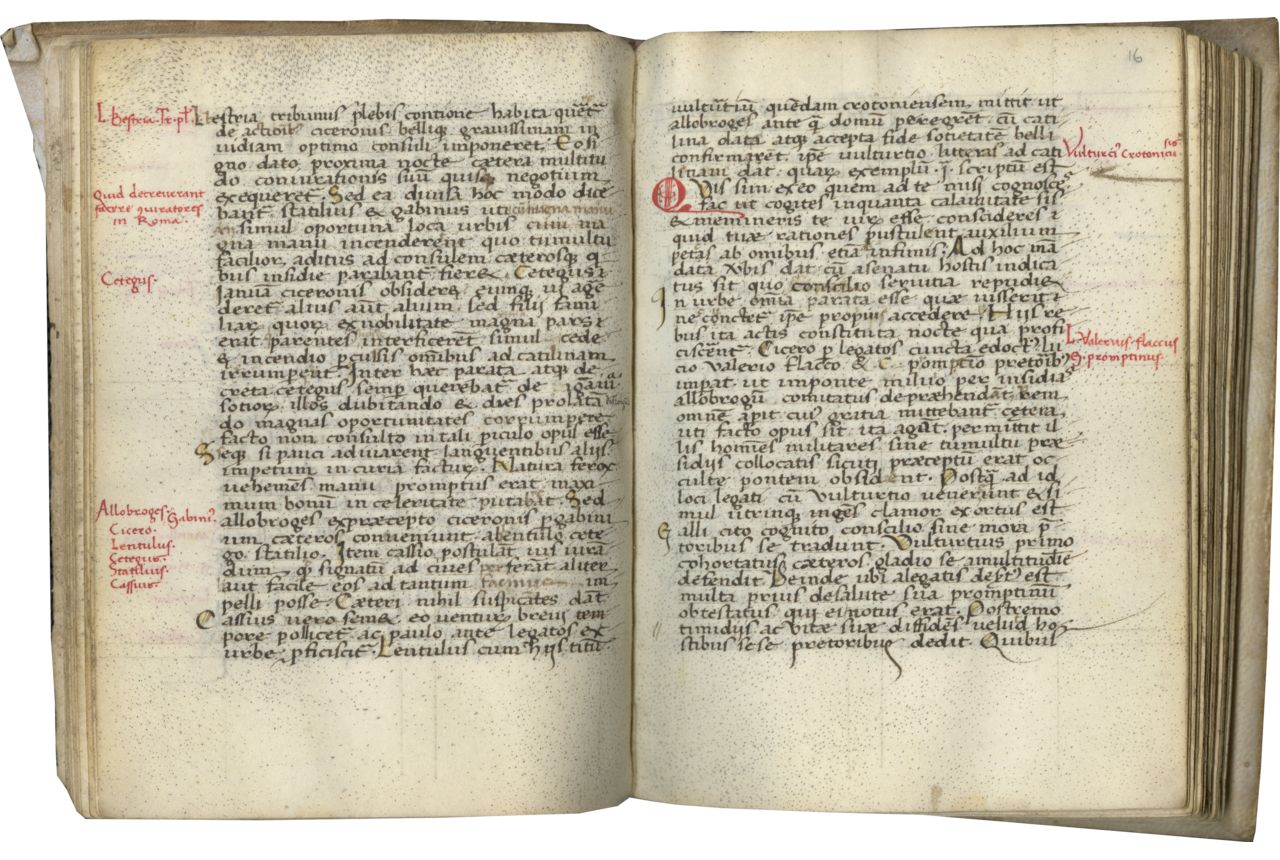 L. Bestria. Tr. pl.
Quid decreverant
facere giuratores
in Roma.
Cetegus.
Allobroges. Gabini9.
Cicero.
Lentulus.
Cetegus.
Statilius.
Cassius.
L bestria tribunus plebis contione habita
de actioib ciceronis belliq gravissimam in
vidiam optimo consuli imponeret. Eo si
gno dato proxima nocte cætera multitu
do coniurationis suū quisq negotium
exequeret. Sed ea divisa hoc modo dice
bant. statilius & gabinus uti cū magna manu
simul oportuna loca urbis cum ma
gna manu incenderent quo tumultu
facilior aditus ad consulem cæterosque q
bus insidie parabant fieret. Cetegus
ianuā ciceronis obsideret eumq vi age
deret alius aūt alium. sed filij fami
liar quor ex nobilitate magna pars
erat parentes interficerent simul cede
& incendio pculsis omībus ad catilinam
irrumperent. Inter hæc parata atq de
creta cetegus semp querebat de
sotior. illos dubitando & dies prolata
do magnas oportunitates corrumpere
facto non consulto in tali piculo opus esse.
Seq si pauci adiuvarent languentibus alijs
impetum in curia factur. Natura ferox
vehemēs manu promptus erat maxi
mum bonū in celeritate putabat. Sed
allobroges ex præcepto ciceronis p gabini
um cæteros conveniunt. ab entulo cete
go statilio. Item cassio postulāt ius iura
dum qd signatū ad cives perferāt aliter
aut facile eos ad tantum im
pelli posse. Cæteri nihil suspicātes dāt
Cassius vero semet eo ventur brevi tem
pore pollicet ac paulo ante legatos ex
urbe pficiscit. Lentulus cum hijs titū
16
vulturtiū quēdam crotoniensem mittit ut
allobroges ante q domū peregret cū cati
lina data atq accepta fide societatē belli
confirmaret. ipe vulturtio litteras ad cati
linam dat quar exemplū. j. scriptū est
Qvis sim ex eo quem ad te misi cognosce
fac ut cogites in quanta calamitate sis
& memineris te vir esse consideres
quid tuæ rationes pustulent auxilium
petas ab omibus etiā infimis. Ad hoc mā
data vbis dat cū a senatu hostis indica
tus sit quo conscilio servitia repudiet
In urbe omīa parata esse quæ iusserit
ne conctet ipe propius accedere. Hijs re
bus ita actis constituta nocte qua profi
ciscerent. Cicero p legatos cuncta edoct lu
cio valerio flacco & C pomptio pretoib
impat ut in ponte milvio per insidia
allobrogū comitatus depræhendāt. rem
omnē apit cui gratia mittebant. cetera
uti facto opus sit ita agāt. permittit il
lis homēs militares sine tumultu præ
sidijs collocatis sicuti præceptū erat oc
culte pontem obsident. Postq ad id
loci legati cū vulturtio venerunt & si
mul utrinque ingēs clamor exortus est
Galli cito cognito conscilio sine mora p
toribus se tradunt. Vulturtius primo
cohortatus cæteros gladio se a multitudie
defendit. Deinde ubi a legatis desert est
multa prius de salute sua promptinū
obtestatus qui ei notus erat. Postremo
timidus ac vitæ suæ diffidēs velud ho
stibus sese pretoribus dedit. Quibus
Vulturci9 Crotonien
sis
L. Valerius flaccus
G. promptinus.